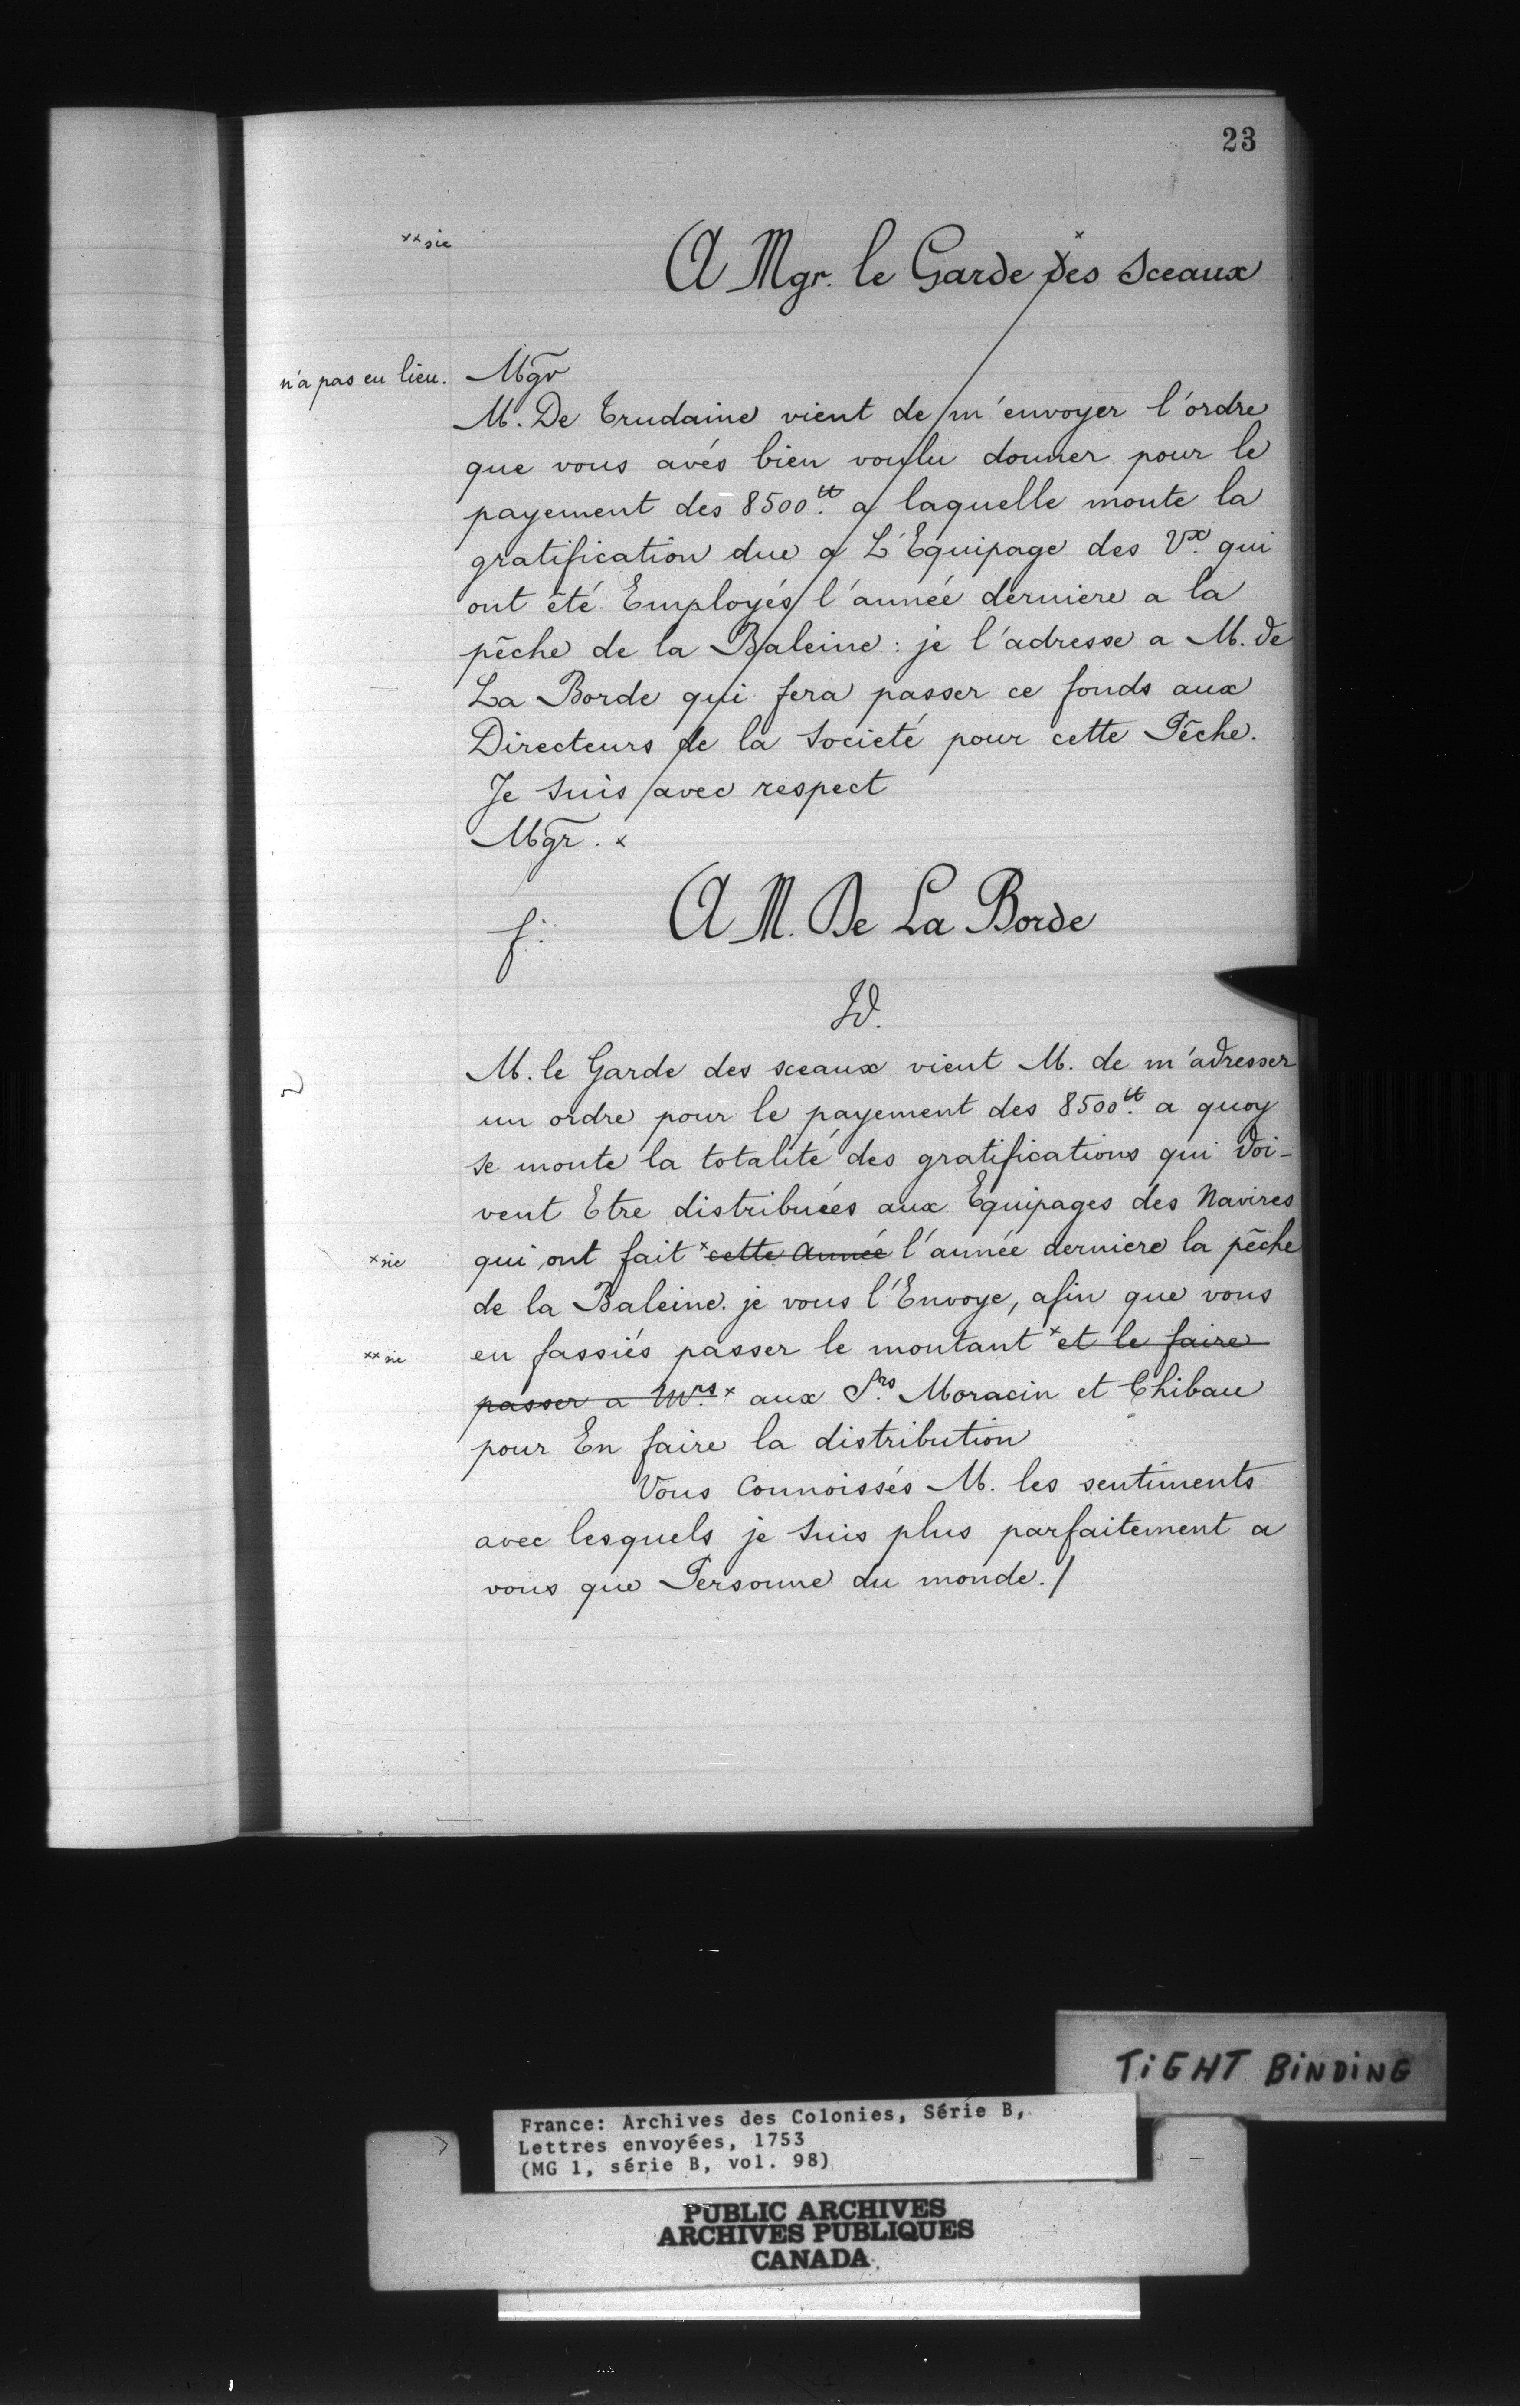 23
xx sic
A Mgr. le Garde x des sceaux
n'a pas eu lieu.
Mgr
M. De Trudaine vient de m'envoyer l'ordre
que vous avés bien voulu donner pour le
payement des 8500tt. a laquelle monte la
gratification due a L'Equipage des Vx. qui
ont été Employés l'année derniere a la
pêche de la Baleine : je l'adresse a M. de
La Borde qui fera passer ce fonds aux
Directeurs de la societé pour cette Pêche.
Je suis avec respect
Mgr. x
f:
A M. De La Borde
Id.
M. le Garde des sceaux vient M. de m'adresser
un ordre pour le payement des 8500tt. a quoy
se monte la totalité des gratifications qui doi-
vent Etre distribuées aux Equipages des Navires
x sic
qui ont fait x cette Année l'année derniere la pêche
de la Baleine. je vous l'Envoye, afin que vous
xx sic
en fassiés passer le montant x et le faire
passer a Mrs. x aux Srs. Moracin et Chibau
pour En faire la distribution
Vous Connoissés M. les sentiments
avec lesquels je suis plus parfaitement a
vous que Personne du monde./
TiGHT BiNDiNG
France: Archives des Colonies, Série B,
Lettres envoyées, 1753
(MG 1, série B, vol. 98)
PUBLIC ARCHIVES
ARCHIVES PUBLIQUES
CANADA